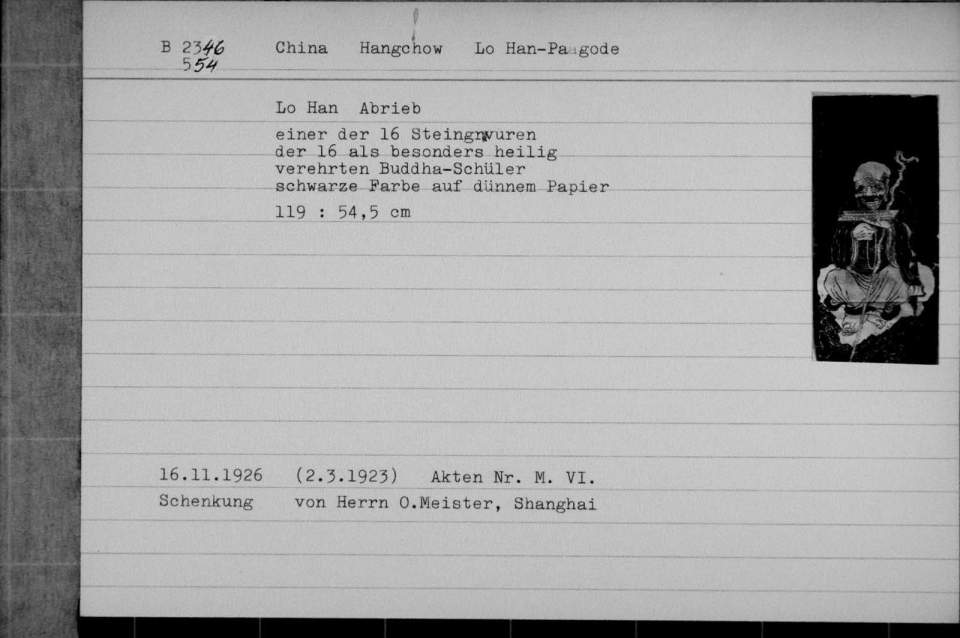 B 2346 China Hangchow Lo Han-Pagode
554
Lo Han Abrieb
einer der 16 Steingravuren
der 16 als besonders heilig
verehrten Buddha-Schüler
schwarze Farbe auf dünnem Papier
119 : 54,5 cm
16.11.1926 (2.3.1923) Akten Nr. M. VI.
Schenkung von Herrn O.Meister, Shanghai